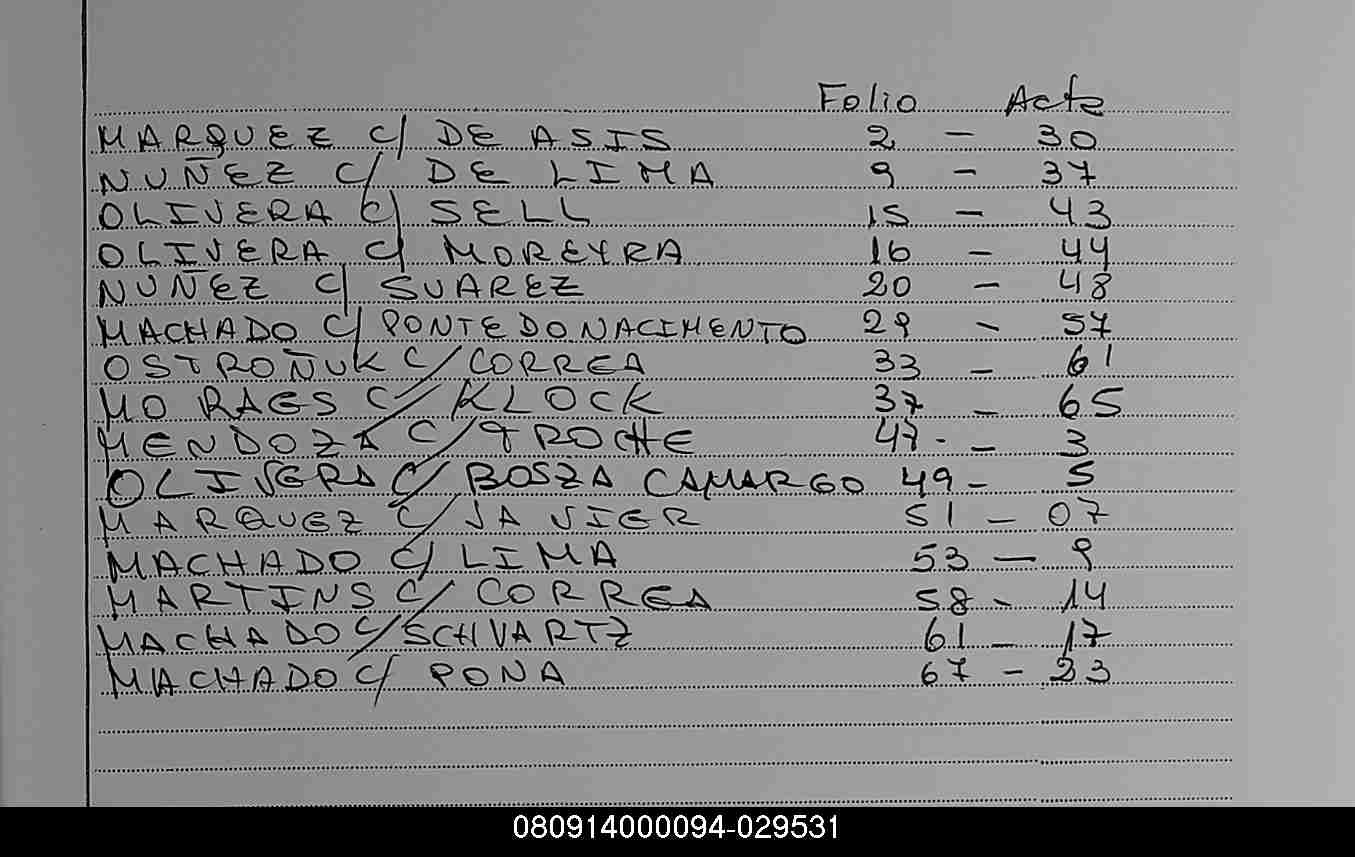 Folio Acta
MARQUEZ c/ DE ASIS 2 - 30
NUÑEZ c/ DE LIMA 9 - 37
OLIVERA c/ SELL 15 - 43
OLIVERA c/ MOREYRA 16 - 44
NUÑEZ c/ SUAREZ 20 - 48
MACHADO c/ PONTE DO NACIMENTO 29 - 57
OSTROÑUK c/ CORREA 33 - 61
MORAES c/ KLOCK 37 - 65
MENDOZA c/ TROCHE 47 - 3
OLIVERA c/ BOSZA CAMARGO 49 - 5
MARQUEZ c/ JAVIER 51 - 07
MACHADO c/ LIMA 53 - 9
MARTINS c/ CORREA 58 - 14
MACHADO c/ SCHVARTZ 61 - 17
MACHADO c/ PONA 67 - 23
080914000094-029531